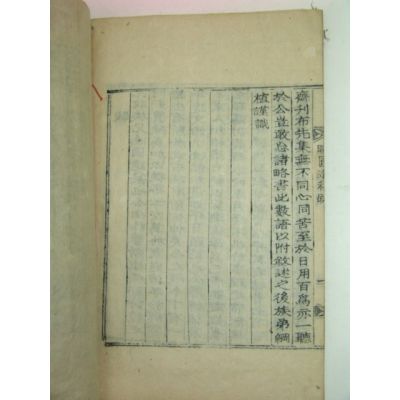 齋刋布先集無不同心同苦至於日用百爲亦一聽
於公豈敢忽諸略書此數語以附敘述之後族弟綱
植謹識